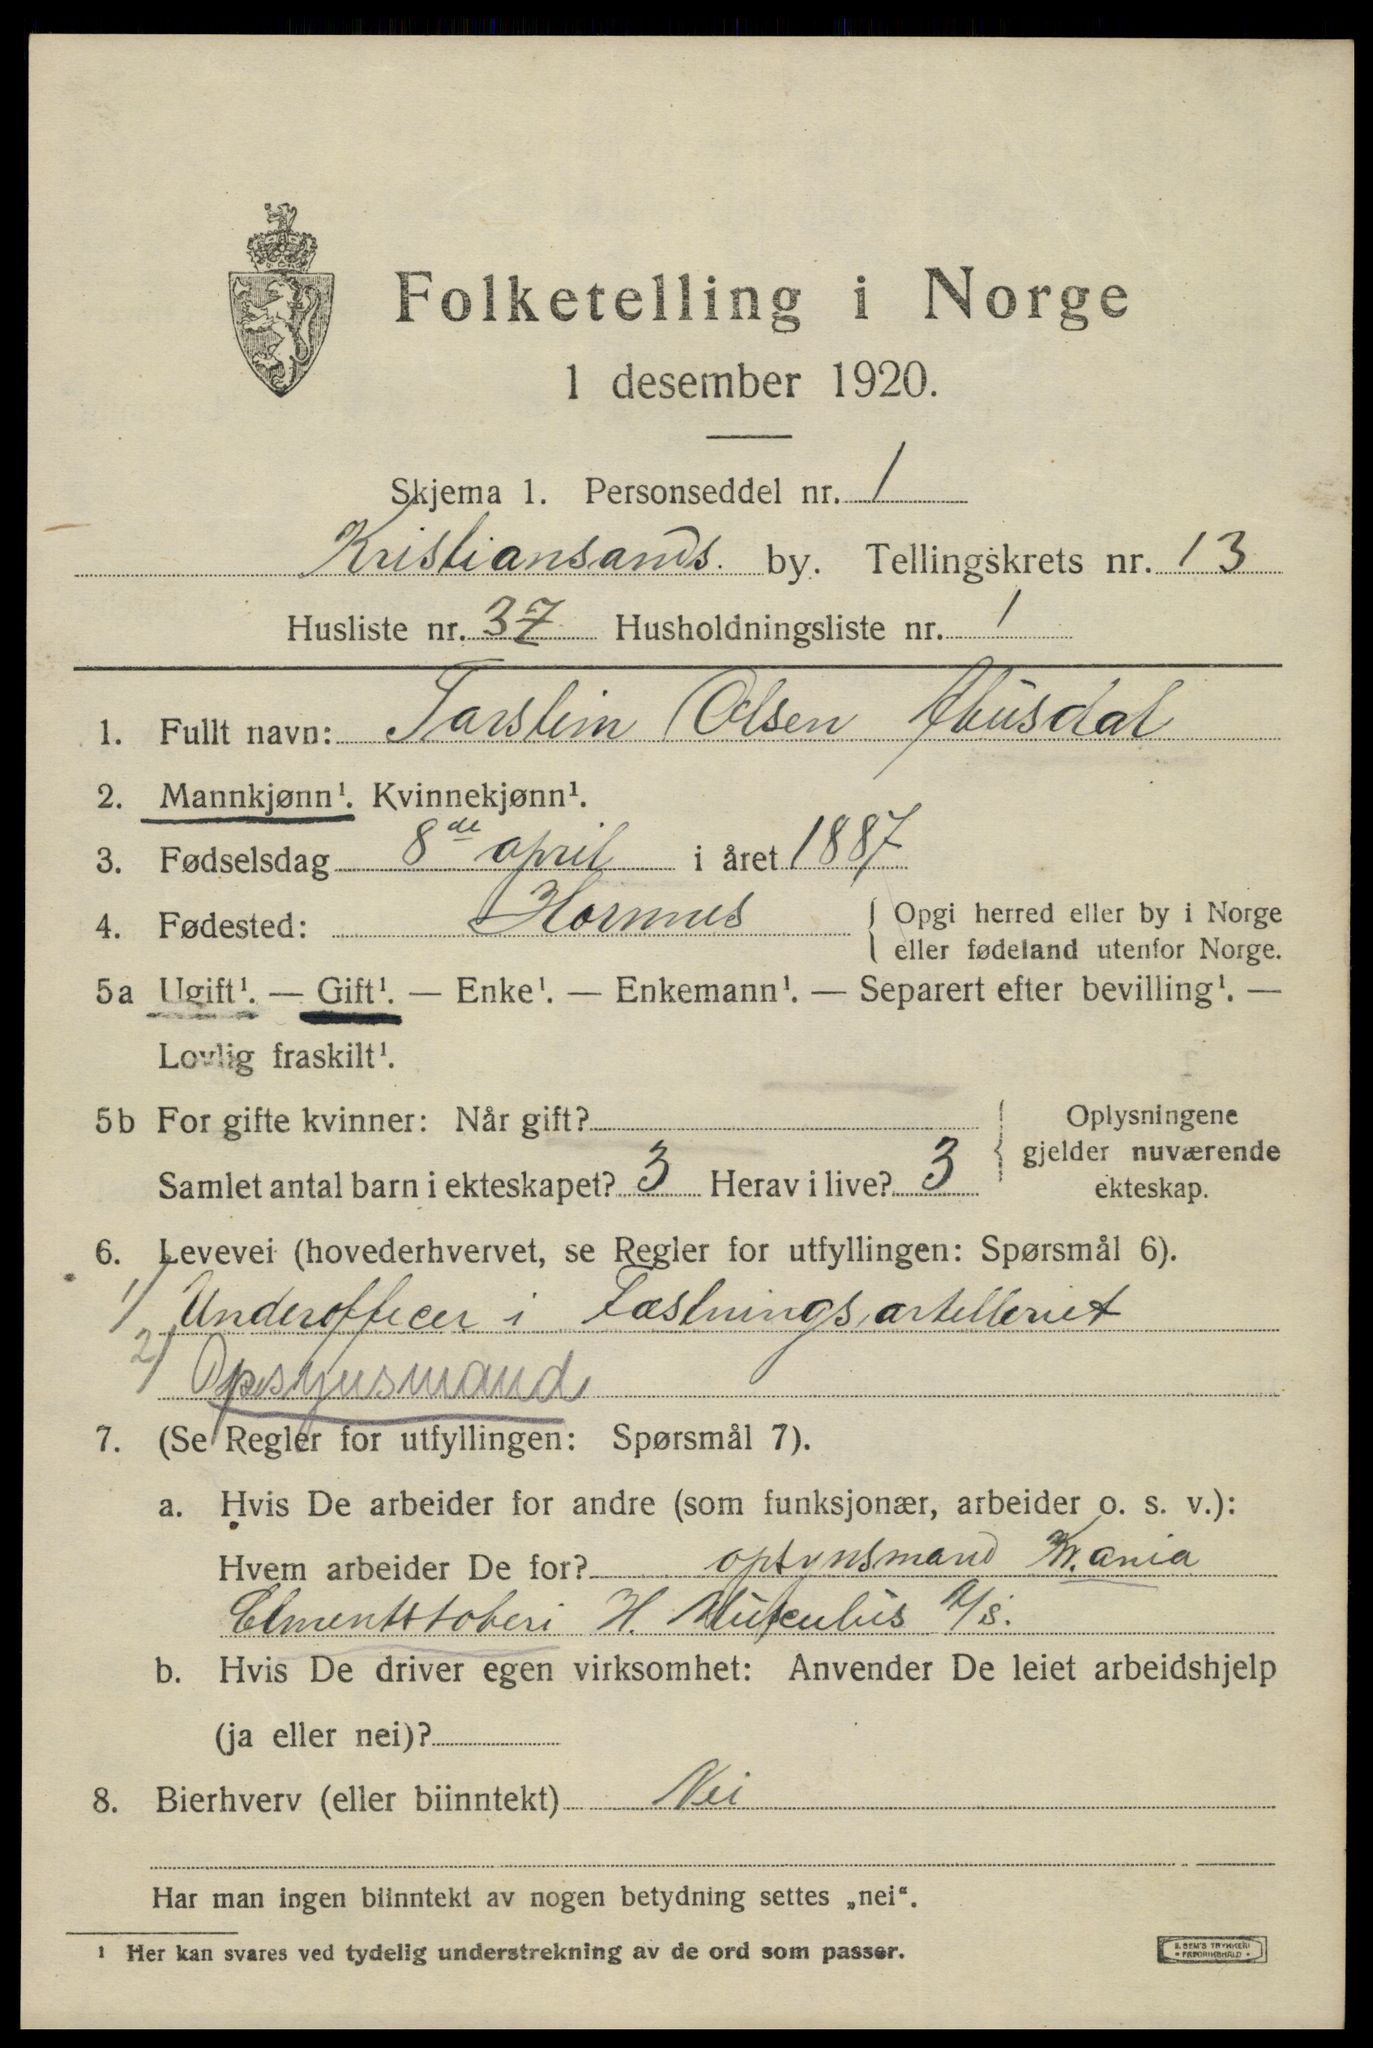 Folketelling i Norge
1 desember 1920.
Skjema 1. Personseddel nr. 1
Kristiansands. by. Tellingskrets nr. 13
Husliste nr. 37 Husholdningsliste nr. 1
1. Fullt navn: Tarstein Olsen Åbusdal
2. Mannkjønn¹. Kvinnekjønn¹.
3. Fødselsdag 8de april i året 1887
4. Fødested: Hornnes { Opgi herred eller by i Norge
eller fødeland utenfor Norge.
5a Ugift¹. — Gift¹. — Enke¹. — Enkemann¹. — Separert efter bevilling¹. —
Lovlig fraskilt¹.
5b For gifte kvinner: Når gift? Oplysningene
gjelder nuværende
Samlet antal barn i ekteskapet? 3 Herav i live? 3 ekteskap.
6. Levevei (hovederhvervet, se Regler for utfyllingen: Spørsmål 6).
1/ Underofficer i Fæstningsartelleriet
2/ Opsynsmand
7. (Se Regler for utfyllingen: Spørsmål 7).
a. Hvis De arbeider for andre (som funksjonær, arbeider o. s. v.):
Hvem arbeider De for? opsynsmand Kr.ania
H. A/s.
b. Hvis De driver egen virksomhet: Anvender De leiet arbeidshjelp
(ja eller nei)?
8. Bierhverv (eller biinntekt) Nei
Har man ingen biinntekt av nogen betydning settes „nei“.
¹ Her kan svares ved tydelig understrekning av de ord som passer.
E. SEM'S TRYKKERI
• FREDRIKSHALD •